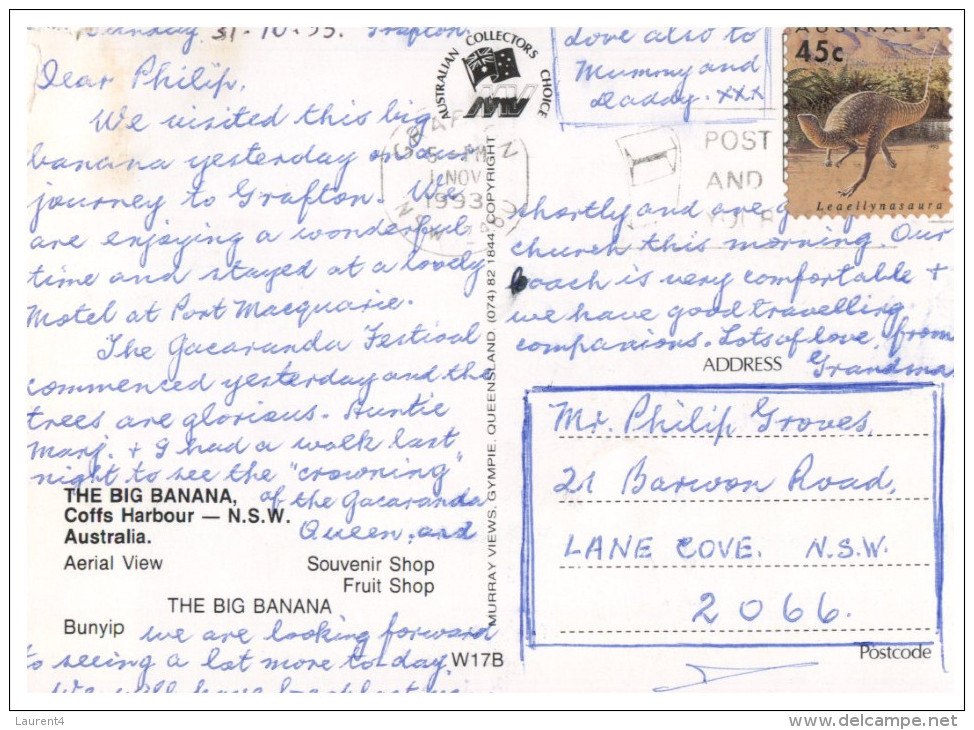 Sunday 31-10-93. Grafton.
Dear Philip,
We visited this big
banana yesterday on our
journey to Grafton. We
are enjoying a wonderful
time and stayed at a lovely
Motel at Port Macquarie.
The Jacaranda Festival
commenced yesterday and the
trees are glorious. Auntie
Marj. + I had a walk last
night to see the "crowning"
of the Jacaranda
Queen, and
THE BIG BANANA,
Coffs Harbour — N.S.W.
Australia.
Aerial View Souvenir Shop
Fruit Shop
THE BIG BANANA
Bunyip
we are looking forward
to seeing a lot more to-day.
We will have breakfast
W17B
MURRAY VIEWS, GYMPIE, QUEENSLAND. (074) 82 1844 COPYRIGHT
AUSTRALIAN COLLECTORS CHOICE
MV
shortly and are
church this morning. Our
coach is very comfortable +
we have good travelling
companions. Lots of love, from
Grandma
Love also to
Mummy and
Daddy. xxx
AUSTRALIA
45c
Leaellynasaura
5 PM
1 NOV
1993
N.S.W.
POST
AND
ADDRESS
Mr. Philip Groves,
21 Barwon Road,
LANE COVE. N.S.W.
2066.
Postcode
Laurent4
delcampe.net